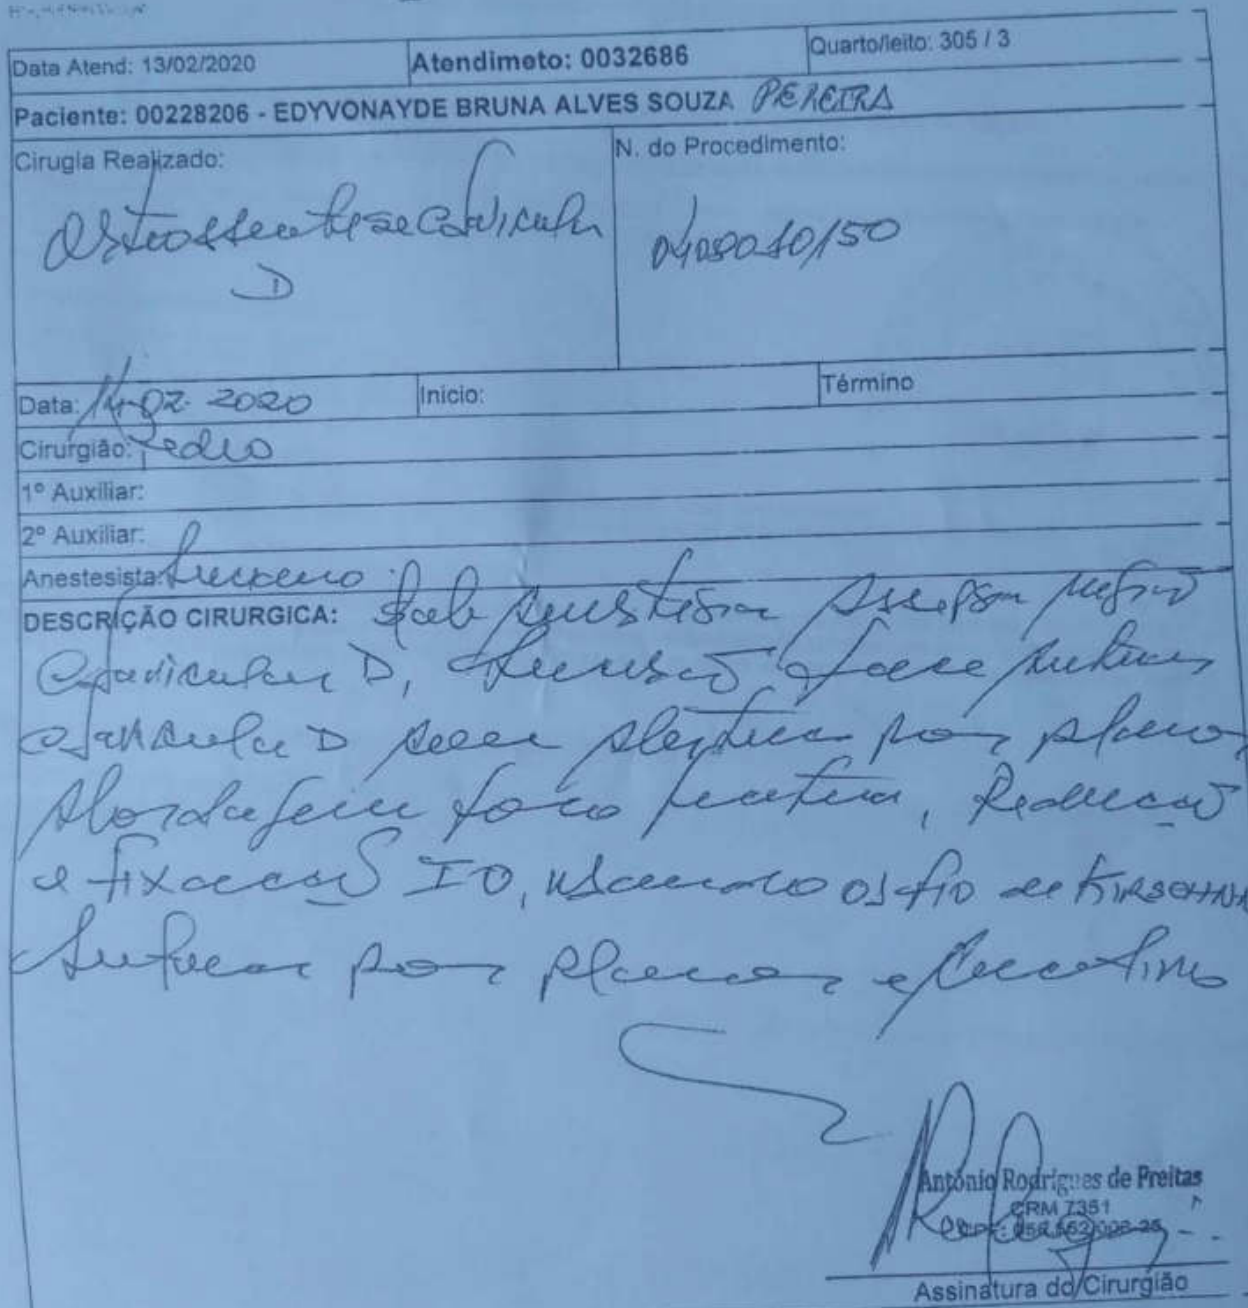 Data Atend: 13/02/2020 Atendimeto: 0032686 Quarto/leito: 305 / 3
Paciente: 00228206 - EDYVONAYDE BRUNA ALVES SOUZA PEREIRA
Cirugia Realizado: N. do Procedimento:
Osteossintese Clavicula
D
Data: 14-02-2020 Inicio: Término
Cirurgião: Pedro
1º Auxiliar:
2º Auxiliar:
Anestesista: Luciano
DESCRIÇÃO CIRURGICA: Sob anestesia Assepsia região
Clavicular D, Incisão face anterior
clavicula D por planos
Abordagem foco fratura, Redução
e fixação IO, usando os fio de KIRSCHNER
Sutura por planos e curativo
António Rodrigues de Freitas
CRM 7351
Assinatura do Cirurgião